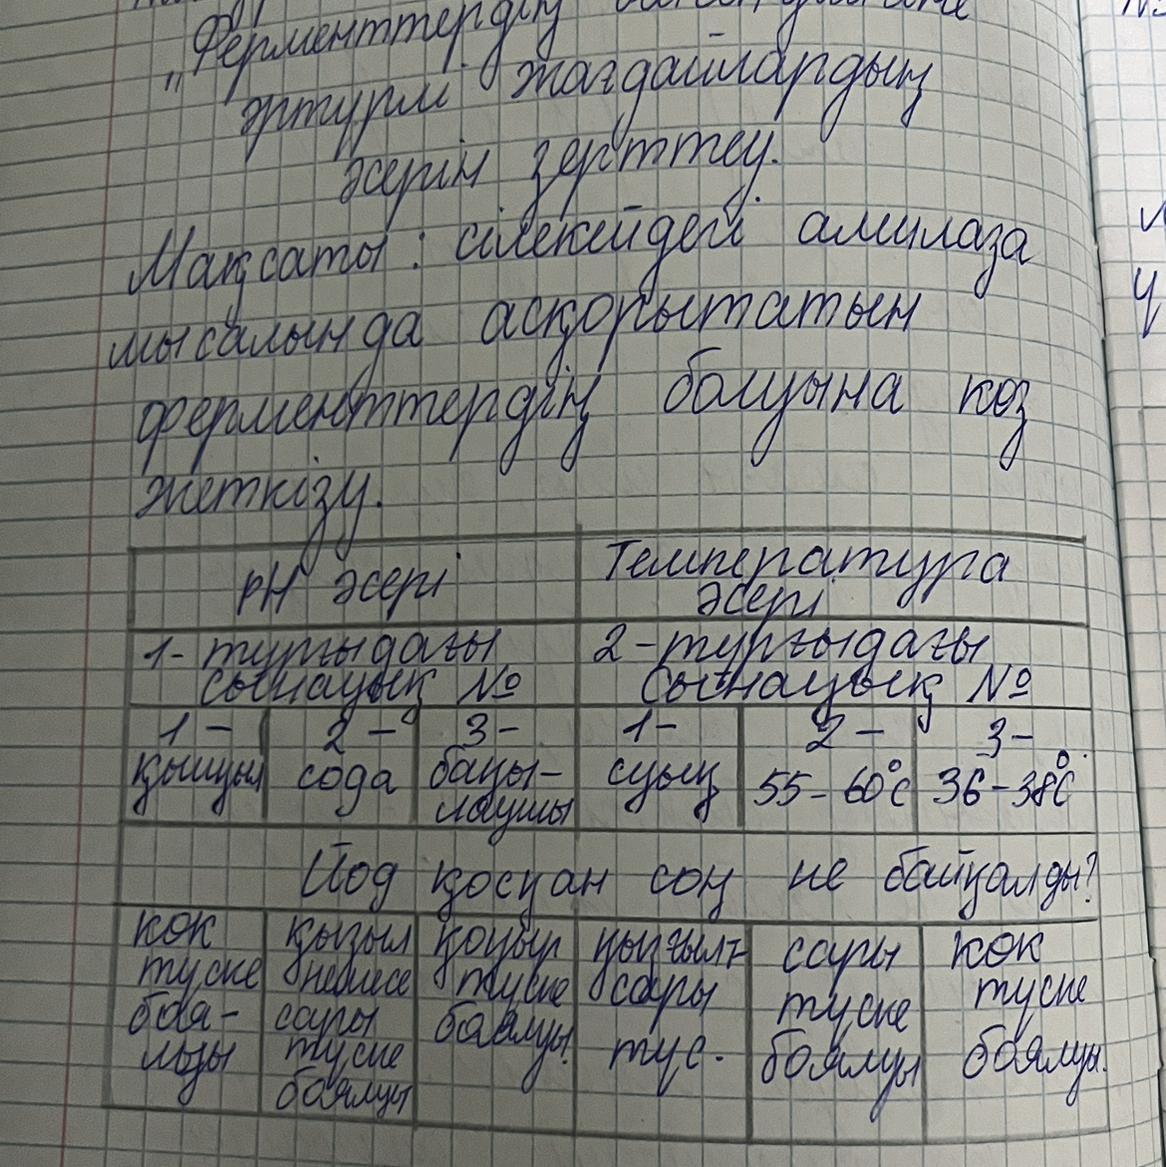 "Ферменттердің
әртүрлі жағдайлардың
әсерін зерттеу.
Мақсаты: сілекейдегі амилаза
мысалында асқорытатын
ферменттердің болуына көз
жеткізу.
рН әсері
Температура
әсері
1-тұрғыдағы
сынауық №
2-тұрғыдағы
сынауық №
1-
қышқыл
2-
сода
3-
бақы-
лаушы
1-
суық
2-
55-60°С
3-
36-38°С
Йод қосқан соң не байқалды?
көк
түске
боя-
лады
қызыл
немесе
сары
түске
боялуы
қоңыр
түске
боялуы.
қызғылт
сары
түс.
сары
түске
боялуы
көк
түске
боялуы.